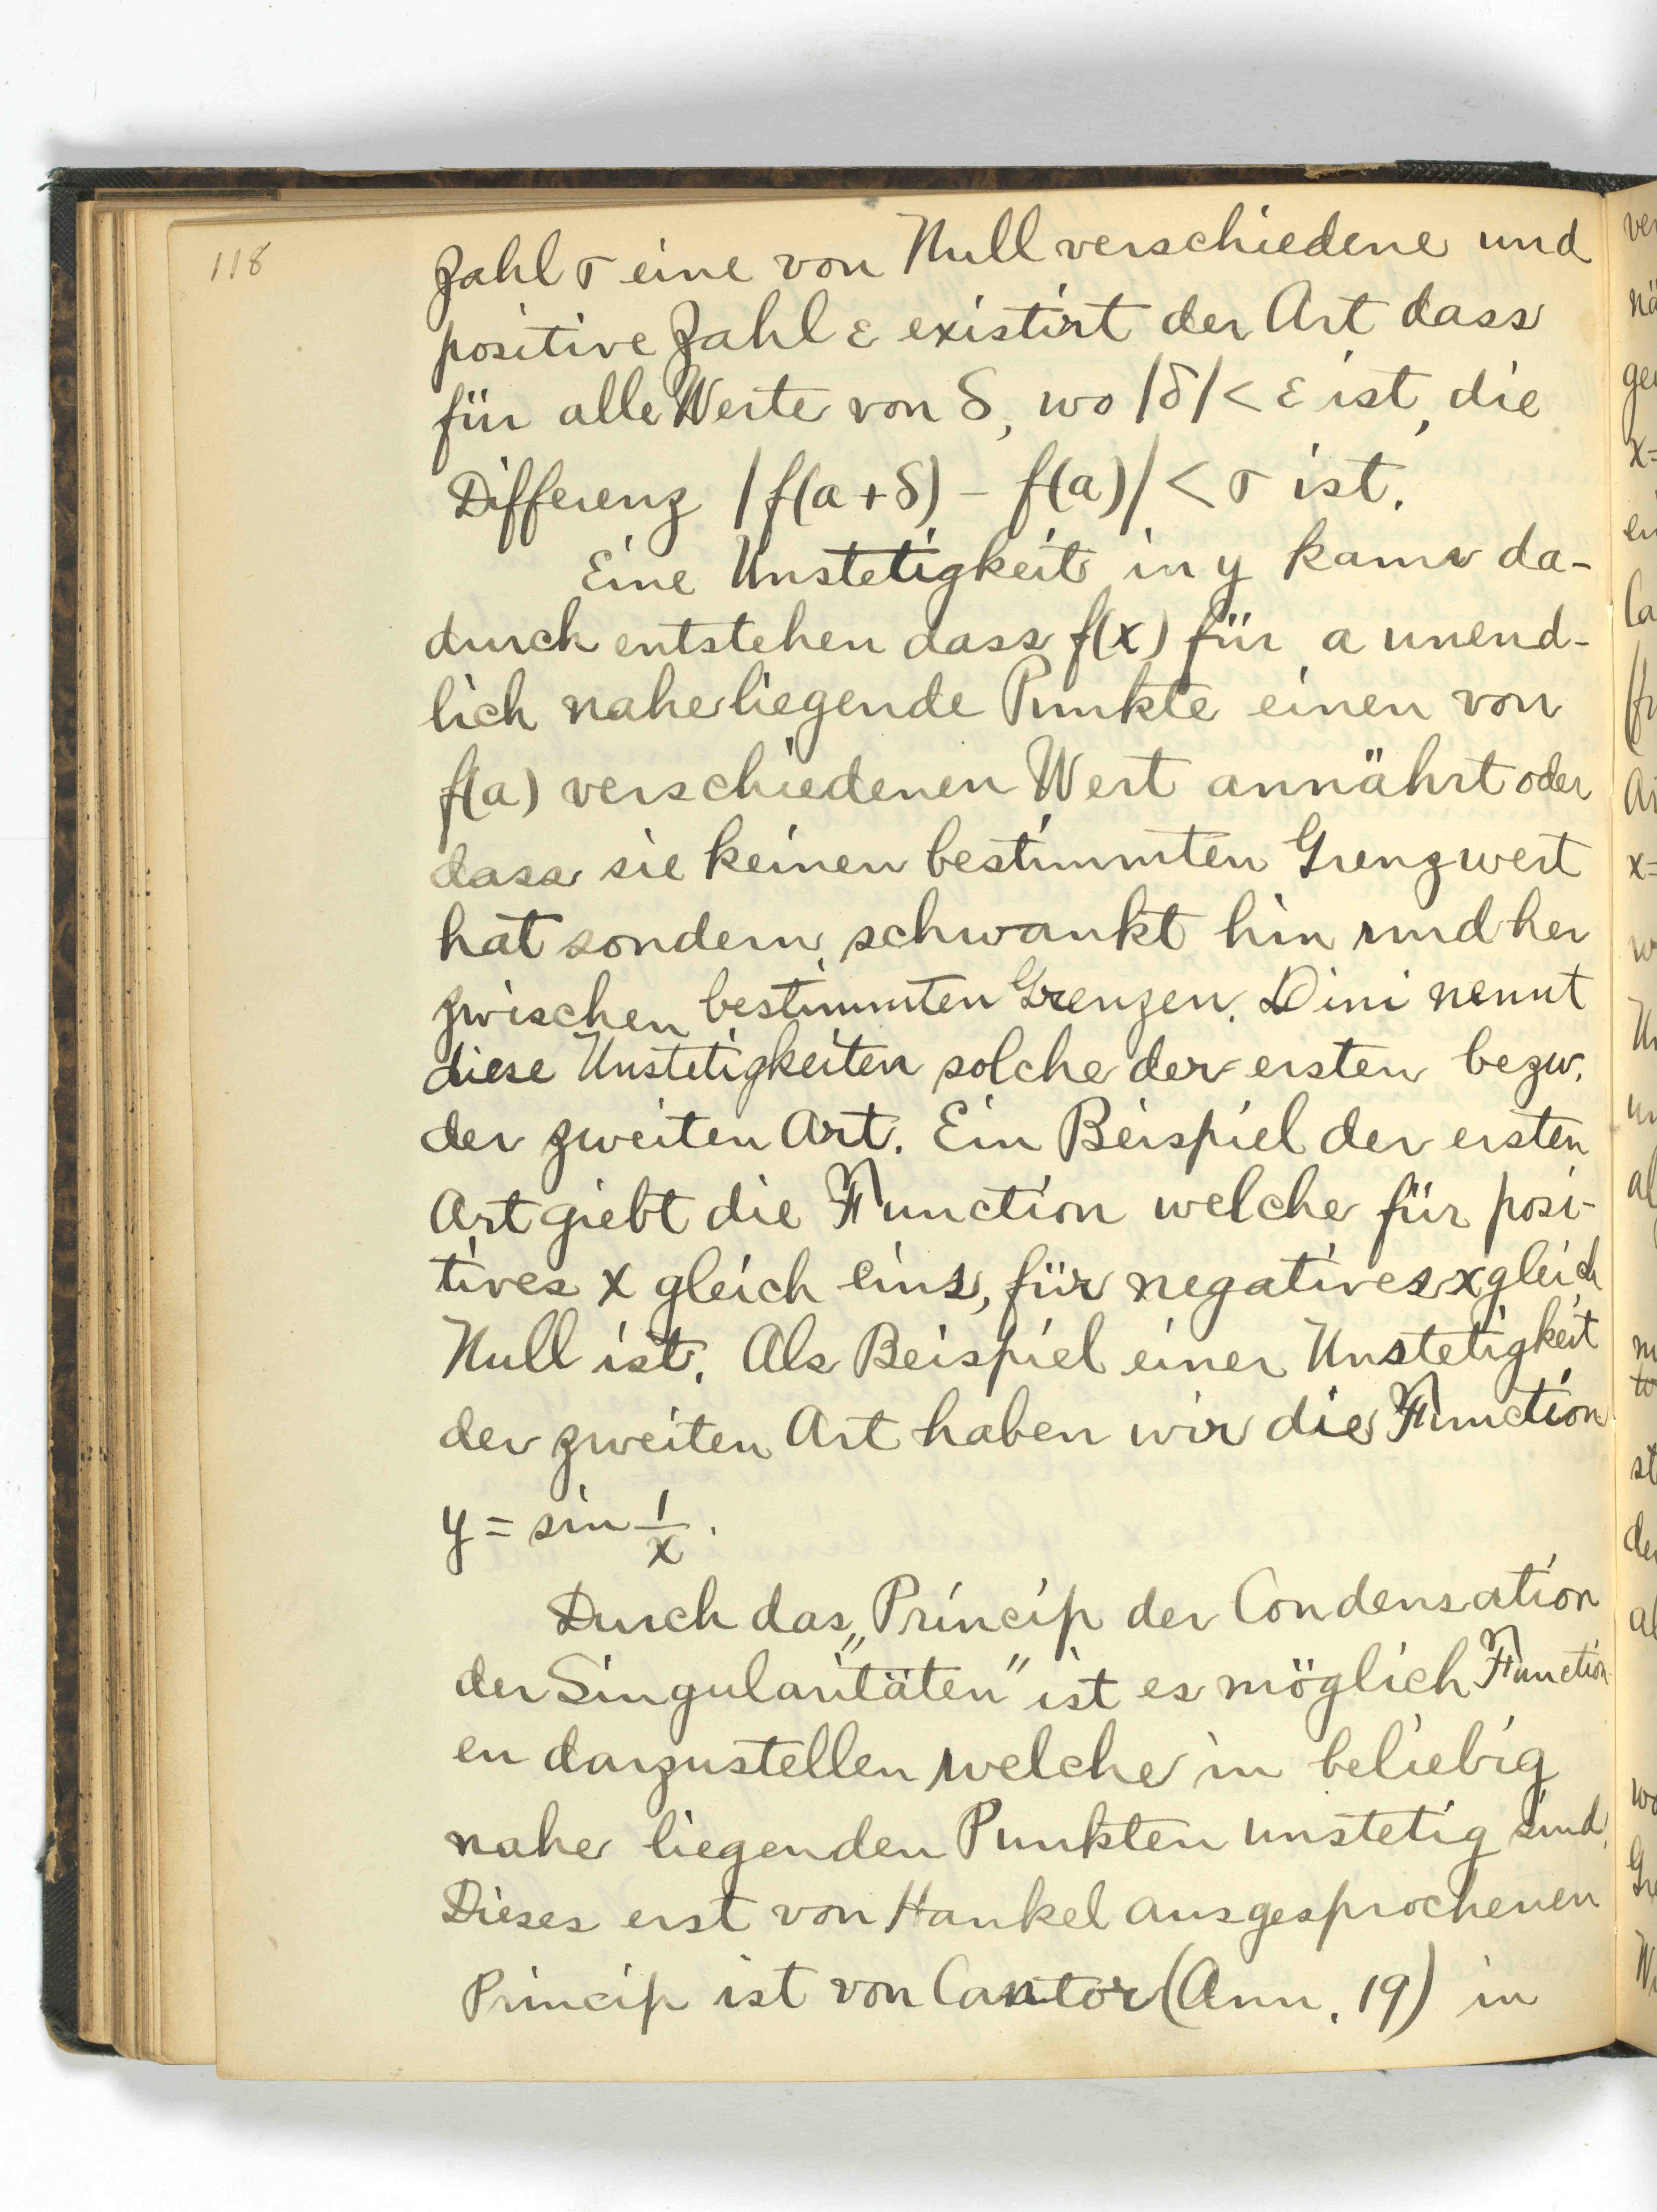 118
Zahl σ eine von Null verschiedene und
positive Zahl ε existirt der Art dass
für alle Werte von δ, wo |δ| < ε ist, die
Differenz |f(a+δ) - f(a)| < σ ist.
Eine Unstetigkeit in y kann da-
durch entstehen dass f(x) für a unend-
lich naheliegende Punkte einen von
f(a) verschiedenen Wert annährt oder
dass sie keinen bestimmten Grenzwert
hat sondern schwankt hin und her
zwischen bestimmten Grenzen. Dini nennt
diese Unstetigkeiten solche der ersten bezw.
der zweiten Art. Ein Beispiel der ersten
Art giebt die Function welche für posi-
tives x gleich eins, für negatives x gleich
Null ist. Als Beispiel einer Unstetigkeit
der zweiten Art haben wir die Function
y = sin 1/x.
Durch das „Princip der Condensation
der Singularitäten" ist es möglich Function-
en darzustellen welche in beliebig
nahe liegenden Punkten unstetig sind.
Dieses erst von Hankel ausgesprochenen
Princip ist von Cantor (Ann. 19) in